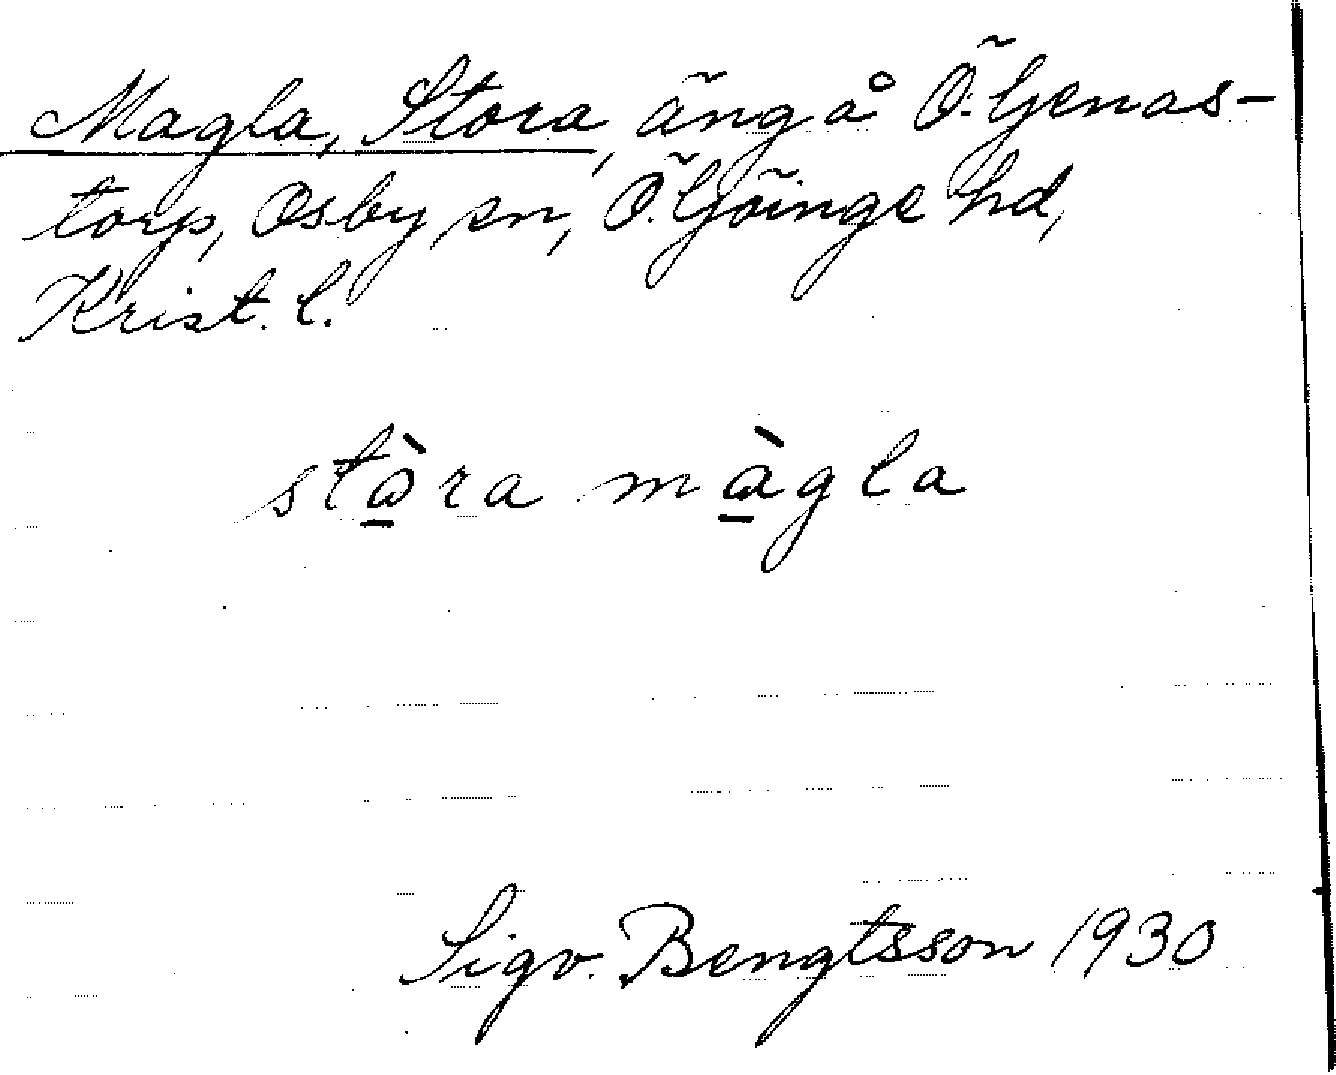 Magla, Stora, äng å Ö. Genas-
torp, Osby sn, Ö. Göinge hd,
Krist. l.
stὼ̱ra mà̱gla
Sigv. Bengtsson 1930